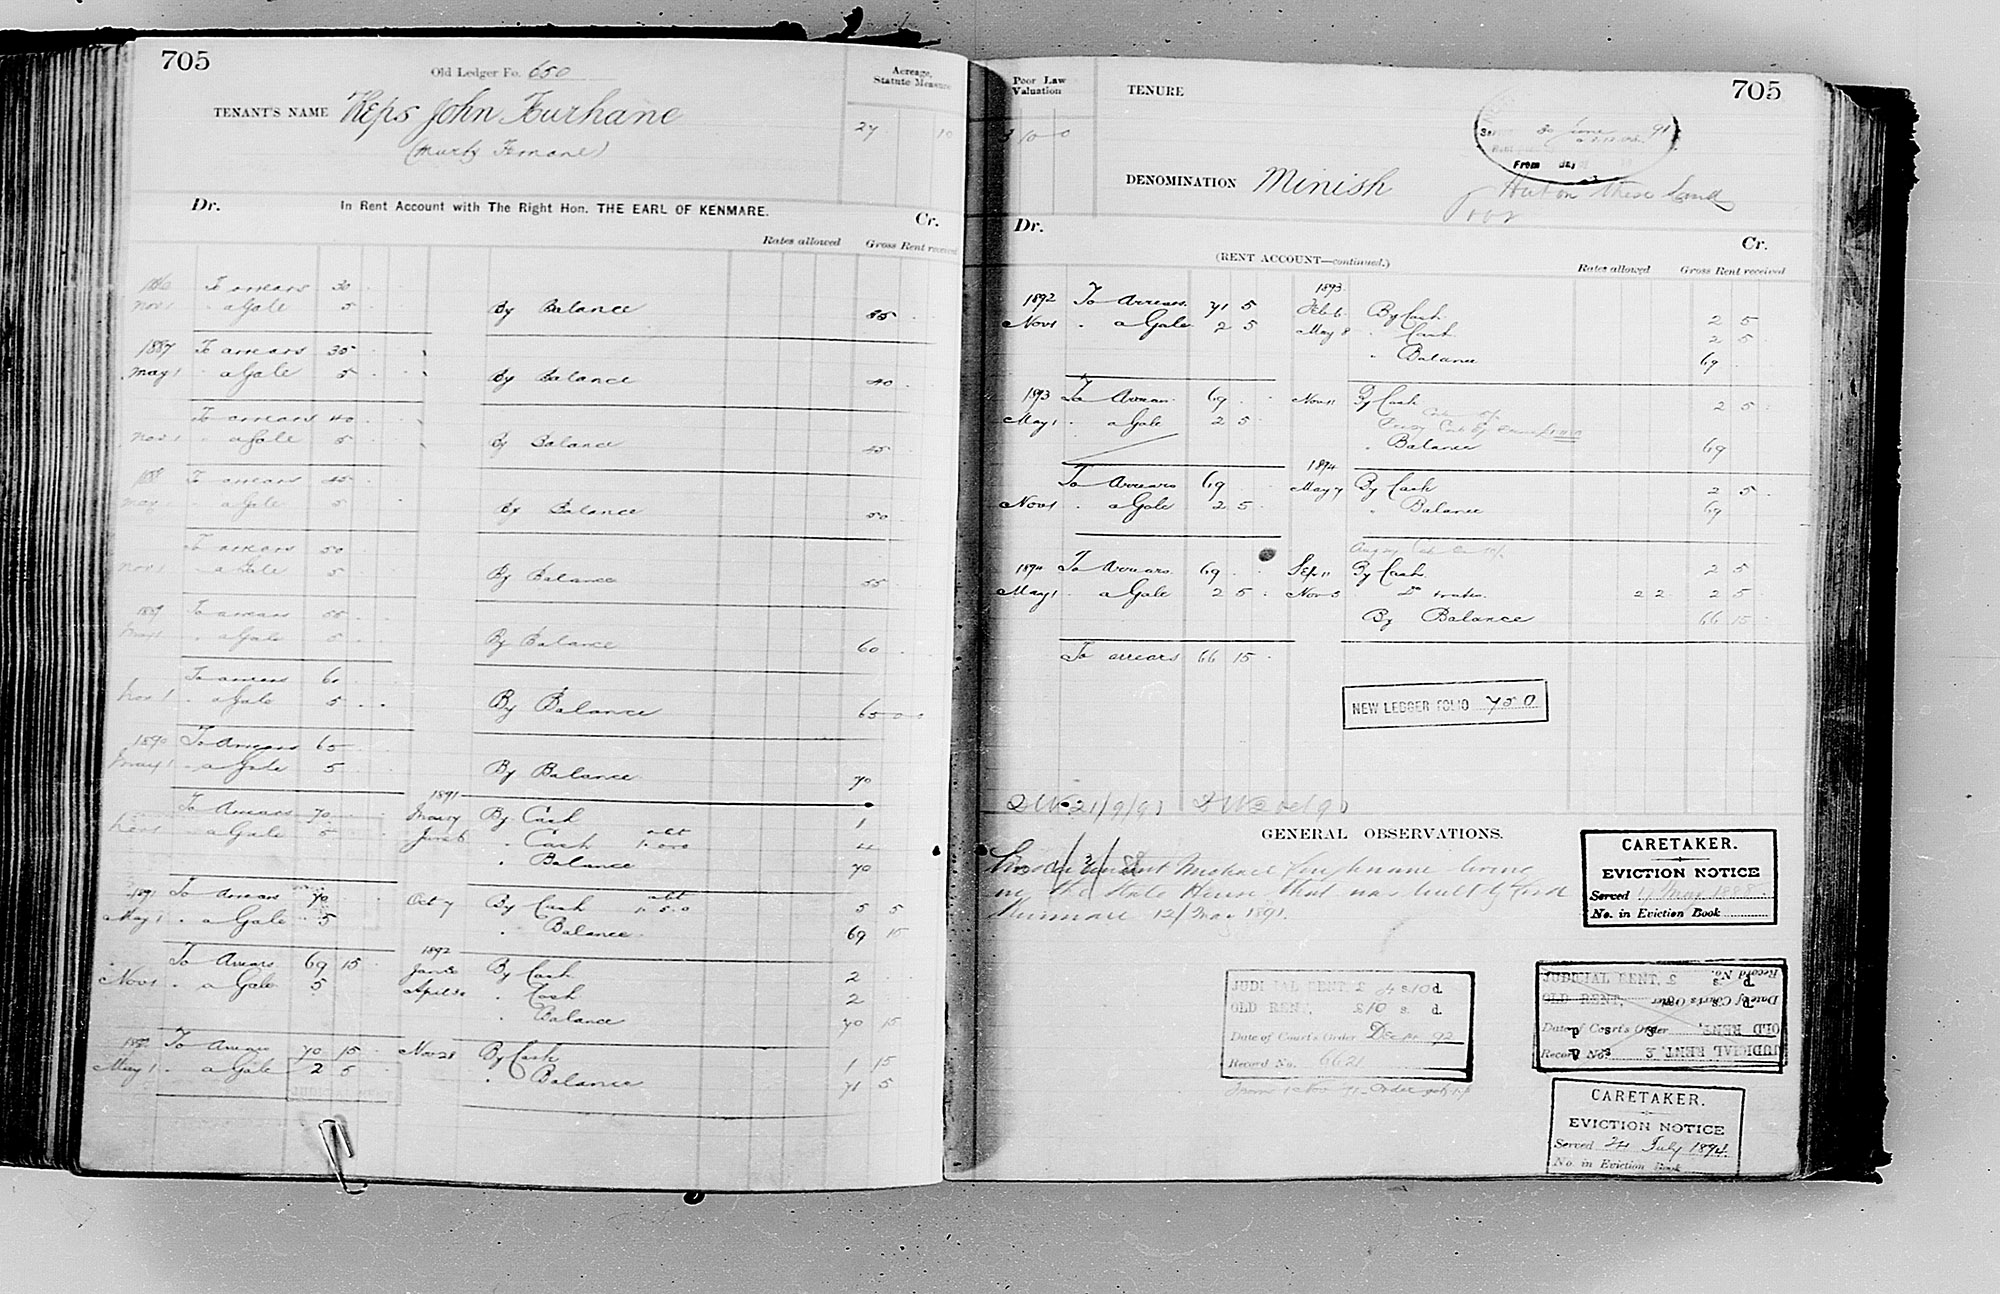 705
Old Ledger Fo. 650
Acreage, Statute Measure
TENANT'S NAME Reps John Furhane
27 10
Dr. In Rent Account with The Right Hon. THE EARL OF KENMARE. Cr.
Rates allowed Gross Rent received
1886 To arrears 30
Nov 1 " a Gale 5 By Balance 35
1887 To arrears 35
May 1 " a Gale 5 By Balance 40
To arrears 40
Nov 1 " a Gale 5 By Balance 45
1888 To arrears 45
May 1 " a Gale 5 By Balance 50
To arrears 50
Nov 1 " a Gale 5 By Balance 55
1889 To arrears 55
May 1 " a Gale 5 By Balance 60
To arrears 60
Nov 1 " a Gale 5 By Balance 65 0 0
1890 To Arrears 65
May 1 " a Gale 5 By Balance 70
1891
To Arrears 70 By Cash 1
Nov 1 " a Gale 5 June 6 " Cash 4
" Balance 70
1891 To Arrears 70 Oct 7 By Cash abt 1.5.0 5 5
May 1 " a Gale 5 " Balance 69 15
1892
To Arrears 69 15 By Cash 2
Nov 1 " a Gale 5 " Cash 2
" Balance 70 15
1892 To Arrears 70 15 Nov 28 By Cash 1 15
May 1 " a Gale 2 5 " Balance 71 5
705
Poor Law Valuation
TENURE
30 June 91
From
DENOMINATION Minish
Hut on these Land
Dr. Cr.
(RENT ACCOUNT—continued.)
Rates allowed Gross Rent received
1893
1892 To Arrears 71 5 Feb 6 By Cash 2 5
Nov 1 " a Gale 2 5 May 8 " Cash 2 5
" Balance 69
1893 To Arrears 69 Nov 11 By Cash 2 5
May 1 " a Gale 2 5
" Balance 69
1894
To Arrears 69 May 7 By Cash 2 5
Nov 1 " a Gale 2 5 " Balance 69
1894 To Arrears 69 Sep 11 By Cash 2 5
May 1 " a Gale 2 5 Nov 5 " Do 2 2 2 5
By Balance 66 15
To arrears 66 15
NEW LEDGER FOLIO 750
21/9/91
GENERAL OBSERVATIONS.
Michael living
in the State House that was built by Lord
Kenmare 12/May 1891.
CARETAKER.
EVICTION NOTICE
Served May 1888
No. in Eviction Book
JUDICIAL RENT, £ 4 s. 10 d.
OLD RENT, £10 s. d.
Date of Court's Order Dec 92
Record No. 6621
JUDICIAL RENT, £
OLD RENT,
Date of Court's Order
Record No.
CARETAKER.
EVICTION NOTICE
Served 24 July 1894
No. in Eviction Book